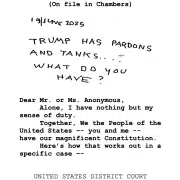 (On file in Chambers)
19 JUNE 2025
TRUMP HAS PARDONS
AND TANKS....
WHAT DO YOU
HAVE?
Dear Mr. or Ms. Anonymous,
Alone, I have nothing but my
sense of duty.
Together, We the People of the
United States -- you and me --
have our magnificent Constitution.
Here's how that works out in a
specific case --
UNITED STATES DISTRICT COURT